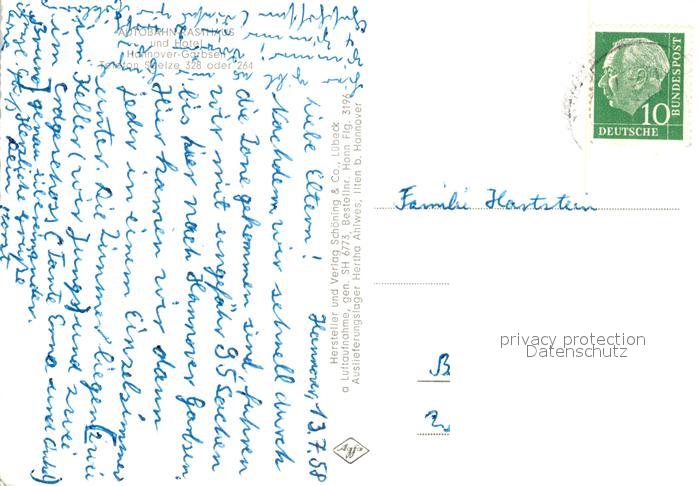 AUTOBAHN-RASTHAUS
und Hotel
Hannover-Garbsen
Telefon Seelze 328 oder 264
Hannover, 13.7.58
Liebe Eltern!
Nachdem wir schnell durch
die Zone gekommen sind, fuhren
wir mit ungefähr 95 Sachen
bis hier nach Hannover Garbsen.
Hier kamen wir dann
jeder in einem Einzelzimmer
unter. Die Zimmer liegen (zwei
im Keller (wir Jungs) und zwei
im Erdgeschoss (Tante Erna und
Bruno) genau übereinander.
Herzliche Grüße
Dein
Hersteller und Verlag Schöning & Co., Lübeck
a Luftaufnahme, gen. SH 6/73, Bestellnr. Hann Flg. 3196
Auslieferungslager Hertha Ahlwes, Ilten b. Hannover
Agfa
10
DEUTSCHE
BUNDESPOST
Familie Hartstein
privacy protection
Datenschutz